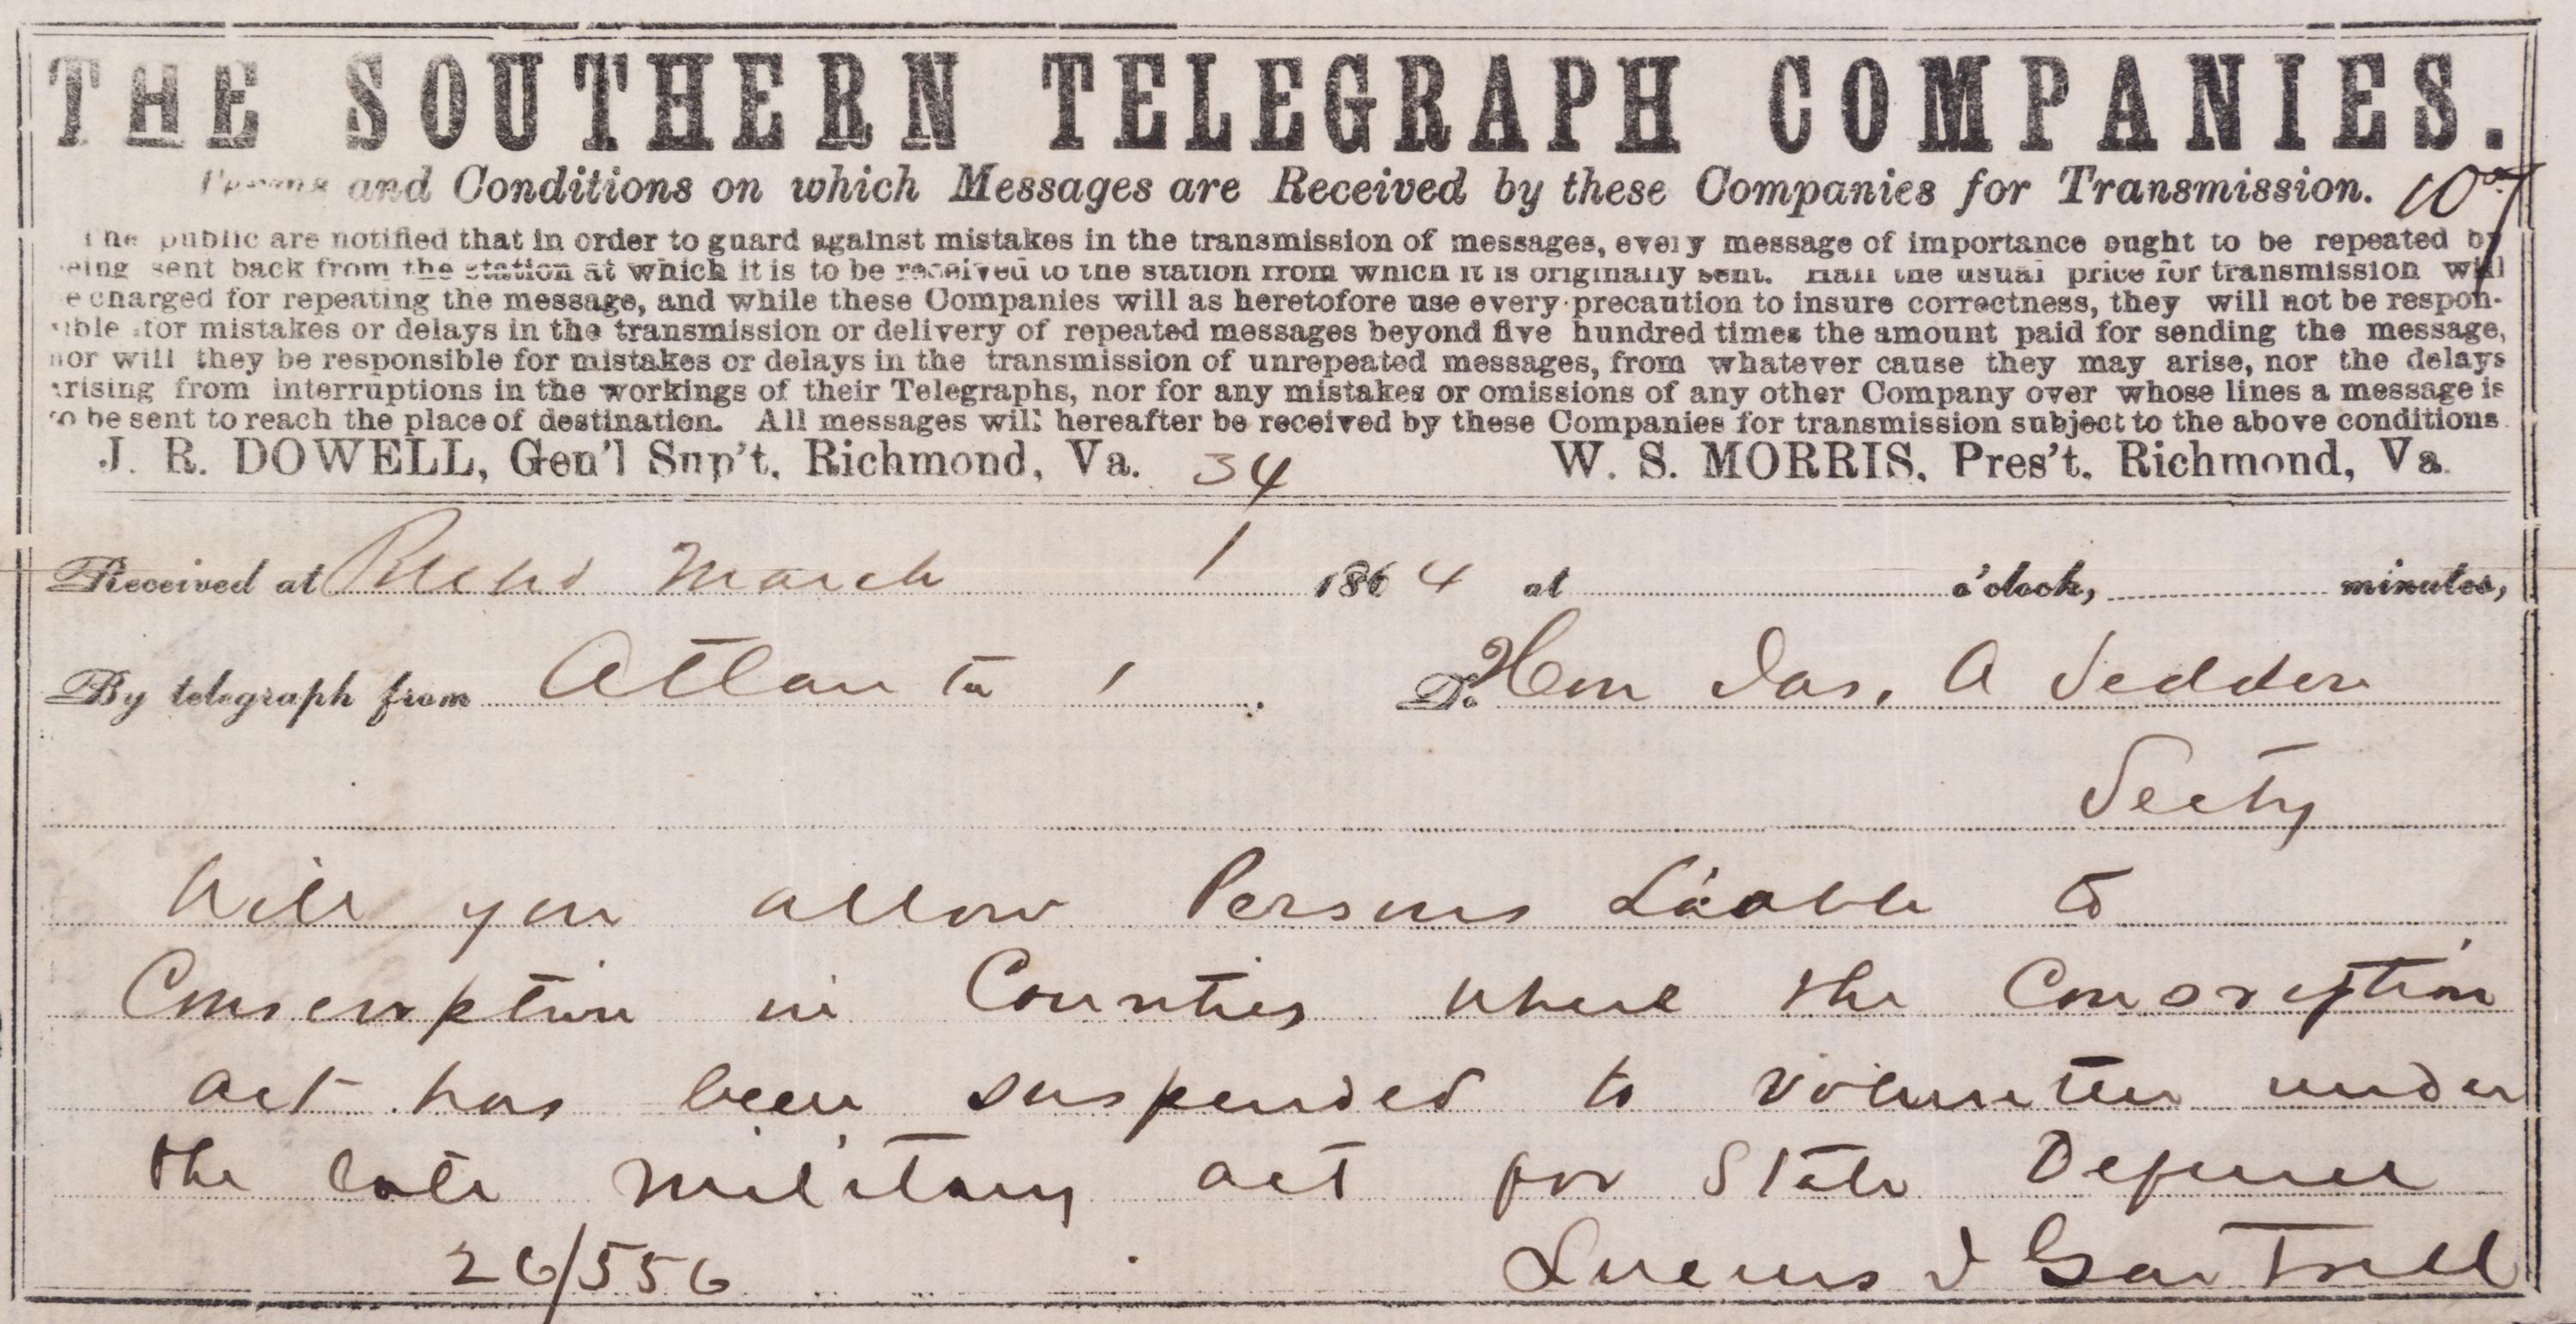 THE SOUTHERN TELEGRAPH COMPANIES.
Terms and Conditions on which Messages are Received by these Companies for Transmission.
The public are notified that in order to guard against mistakes in the transmission of messages, every message of importance ought to be repeated by
eing sent back from the station at which it is to be received to the station from which it is originally sent. Half the usual price for transmission will
e charged for repeating the message, and while these Companies will as heretofore use every precaution to insure correctness, they will not be respon-
ible for mistakes or delays in the transmission or delivery of repeated messages beyond five hundred times the amount paid for sending the message,
nor will they be responsible for mistakes or delays in the transmission of unrepeated messages, from whatever cause they may arise, nor the delays
arising from interruptions in the workings of their Telegraphs, nor for any mistakes or omissions of any other Company over whose lines a message is
to be sent to reach the place of destination. All messages will hereafter be received by these Companies for transmission subject to the above conditions.
J. R. DOWELL, Gen'l Sup't, Richmond, Va. 34 W. S. MORRIS, Pres't, Richmond, Va.
Received at March 1 1864 at o'clock, minutes,
By telegraph from Atlanta 1. To Hon Jas. A Seddon
Secty
Will you allow Persons Liable to
Conscription in Counties where the Conscription
act has been suspended to volunteer under
the late military act for State Defence
26/556 Lucius J Gartrell